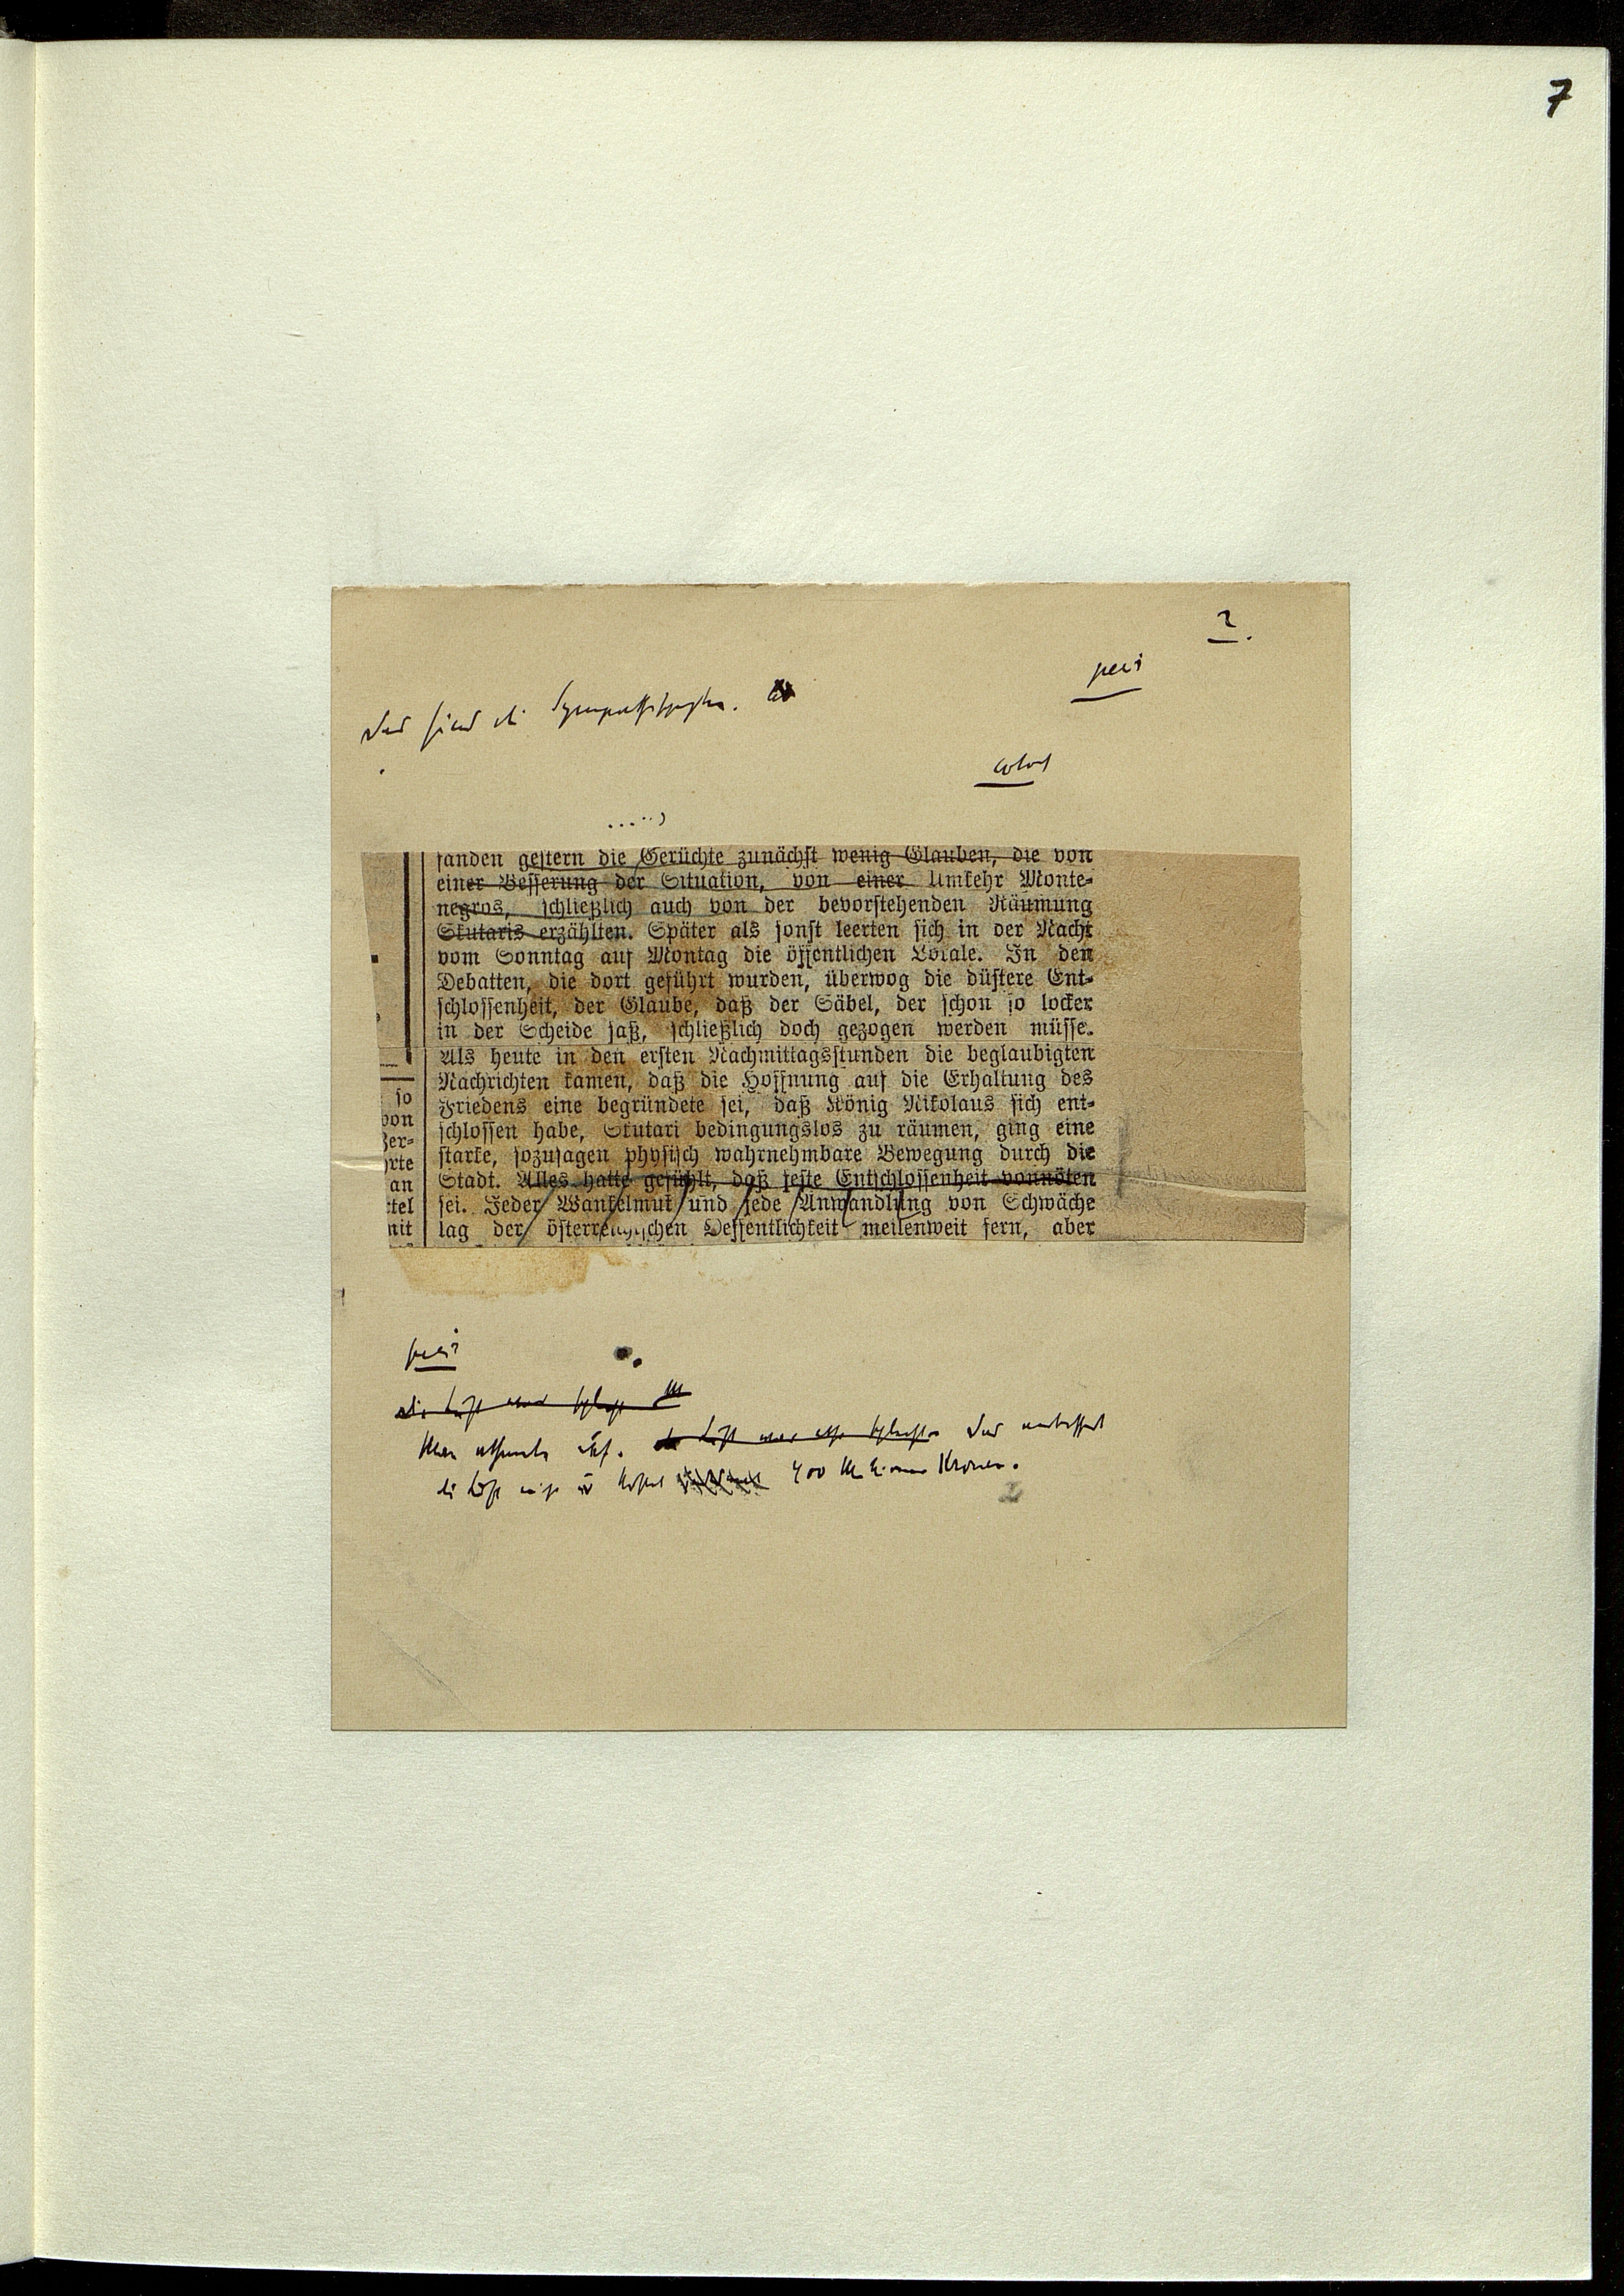 7
2.
petit
Das sind die Sympathischesten.
colonel
.....)
fanden gestern die Gerüchte zunächst wenig Glauben, die von
einer Besserung der Situation, von einer Umkehr Monte-
negros, schließlich auch von der bevorstehenden Räumung
Skutaris erzählten. Später als sonst leerten sich in der Nacht
vom Sonntag auf Montag die öffentlichen Lokale. In den
Debatten, die dort geführt wurden, überwog die düstere Ent-
schlossenheit, der Glaube, daß der Säbel, der schon so locker
in der Scheide saß, schließlich doch gezogen werden müsse.
Als heute in den ersten Nachmittagsstunden die beglaubigten
Nachrichten kamen, daß die Hoffnung auf die Erhaltung des
Friedens eine begründete sei, daß König Nikolaus sich ent-
schlossen habe, Skutari bedingungslos zu räumen, ging eine
starke, sozusagen physisch wahrnehmbare Bewegung durch die
Stadt. Alles hatte gefühlt, daß feste Entschlossenheit vonnöten
sei. Jeder Wankelmut und jede Anwandlung von Schwäche
lag der österreichischen Oeffentlichkeit meilenweit fern, aber
so
von
Zer-
hrte
an
ttel
mit
Man atmete auf. Das verbessert
die Luft nicht u kostet 400 Millionen Kronen.